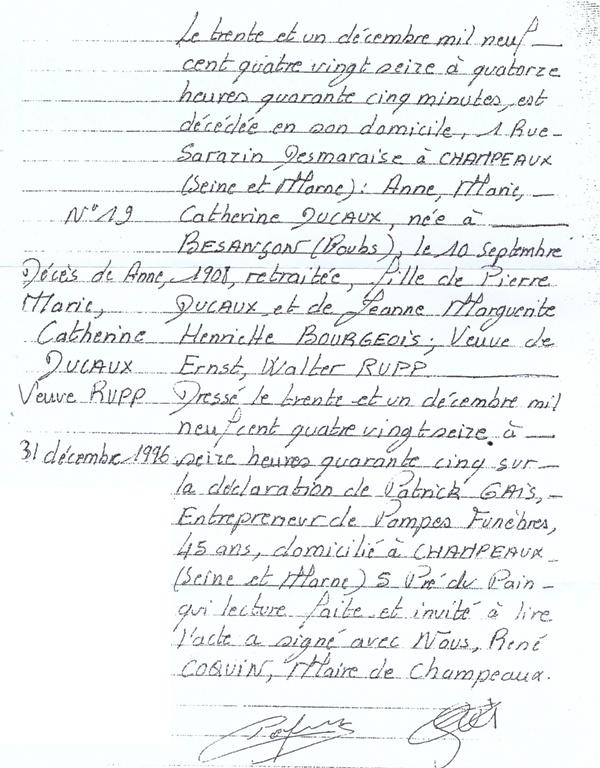 Le trente et un décembre mil neuf
cent quatre vingt seize à quatorze
heures quarante cinq minutes, est
décédée en son domicile, 1 Rue
Sarazin Desmaraise à CHAMPEAUX
(Seine et Marne): Anne, Marie,
Catherine DUCAUX, née à
BESANÇON (Doubs), le 10 Septembre
1908, retraitée, fille de Pierre
DUCAUX et de Jeanne Marguerite
Henriette BOURGEOIS; Veuve de
Ernst, Walter RUPP
Dressé le trente et un décembre mil
neuf cent quatre vingt seize à
seize heures quarante cinq sur
la déclaration de Patrick GAIS,
Entrepreneur de Pompes Funèbres,
45 ans, domicilié à CHAMPEAUX
(Seine et Marne) 5 Pré du Pain
qui lecture faite et invité à lire
l'acte a signé avec Nous, René
COQUIN, Maire de Champeaux.
N° 19
Décès de Anne,
Marie,
Catherine
DUCAUX
Veuve RUPP
31 décembre 1996